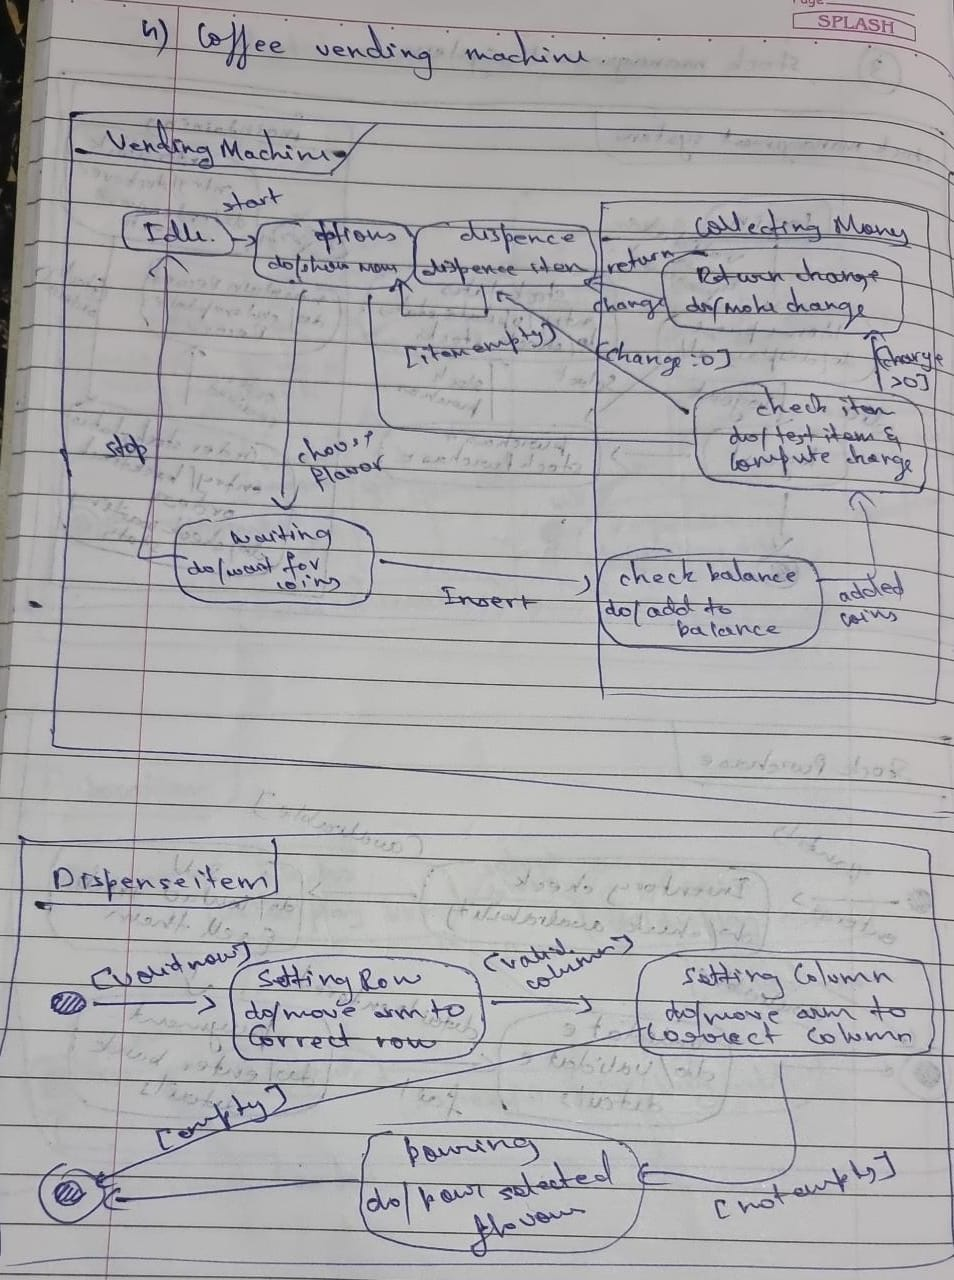 Page
SPLASH
4) Coffee vending machine.
Vending Machine
start
Idle.
options
do/show
dispence
dispence iten
Collecting Mony
return
change
Return change
do/make change
[item empty]
[change :0]
[charge
>0]
check iten
do/test item &
Compute charge
stop
choost
flavor
waiting
do/wait for
coins
Insert
check balance
do/add to
balance
added
coins
Dispense item
[valid row]
Setting Row
do/move arm to
Correct row
[valid
column]
Setting Column
do/move arm to
Correct Column
[empty]
pouring
do/pour selected
flavour
[not empty]